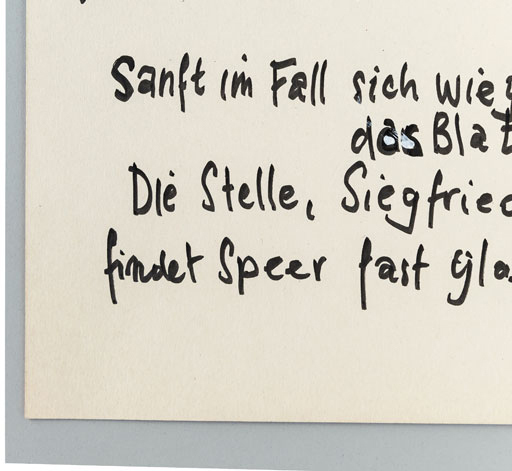 Sanft im Fall sich wieg
das Blat
Die Stelle, Siegfried
findet Speer fast gla